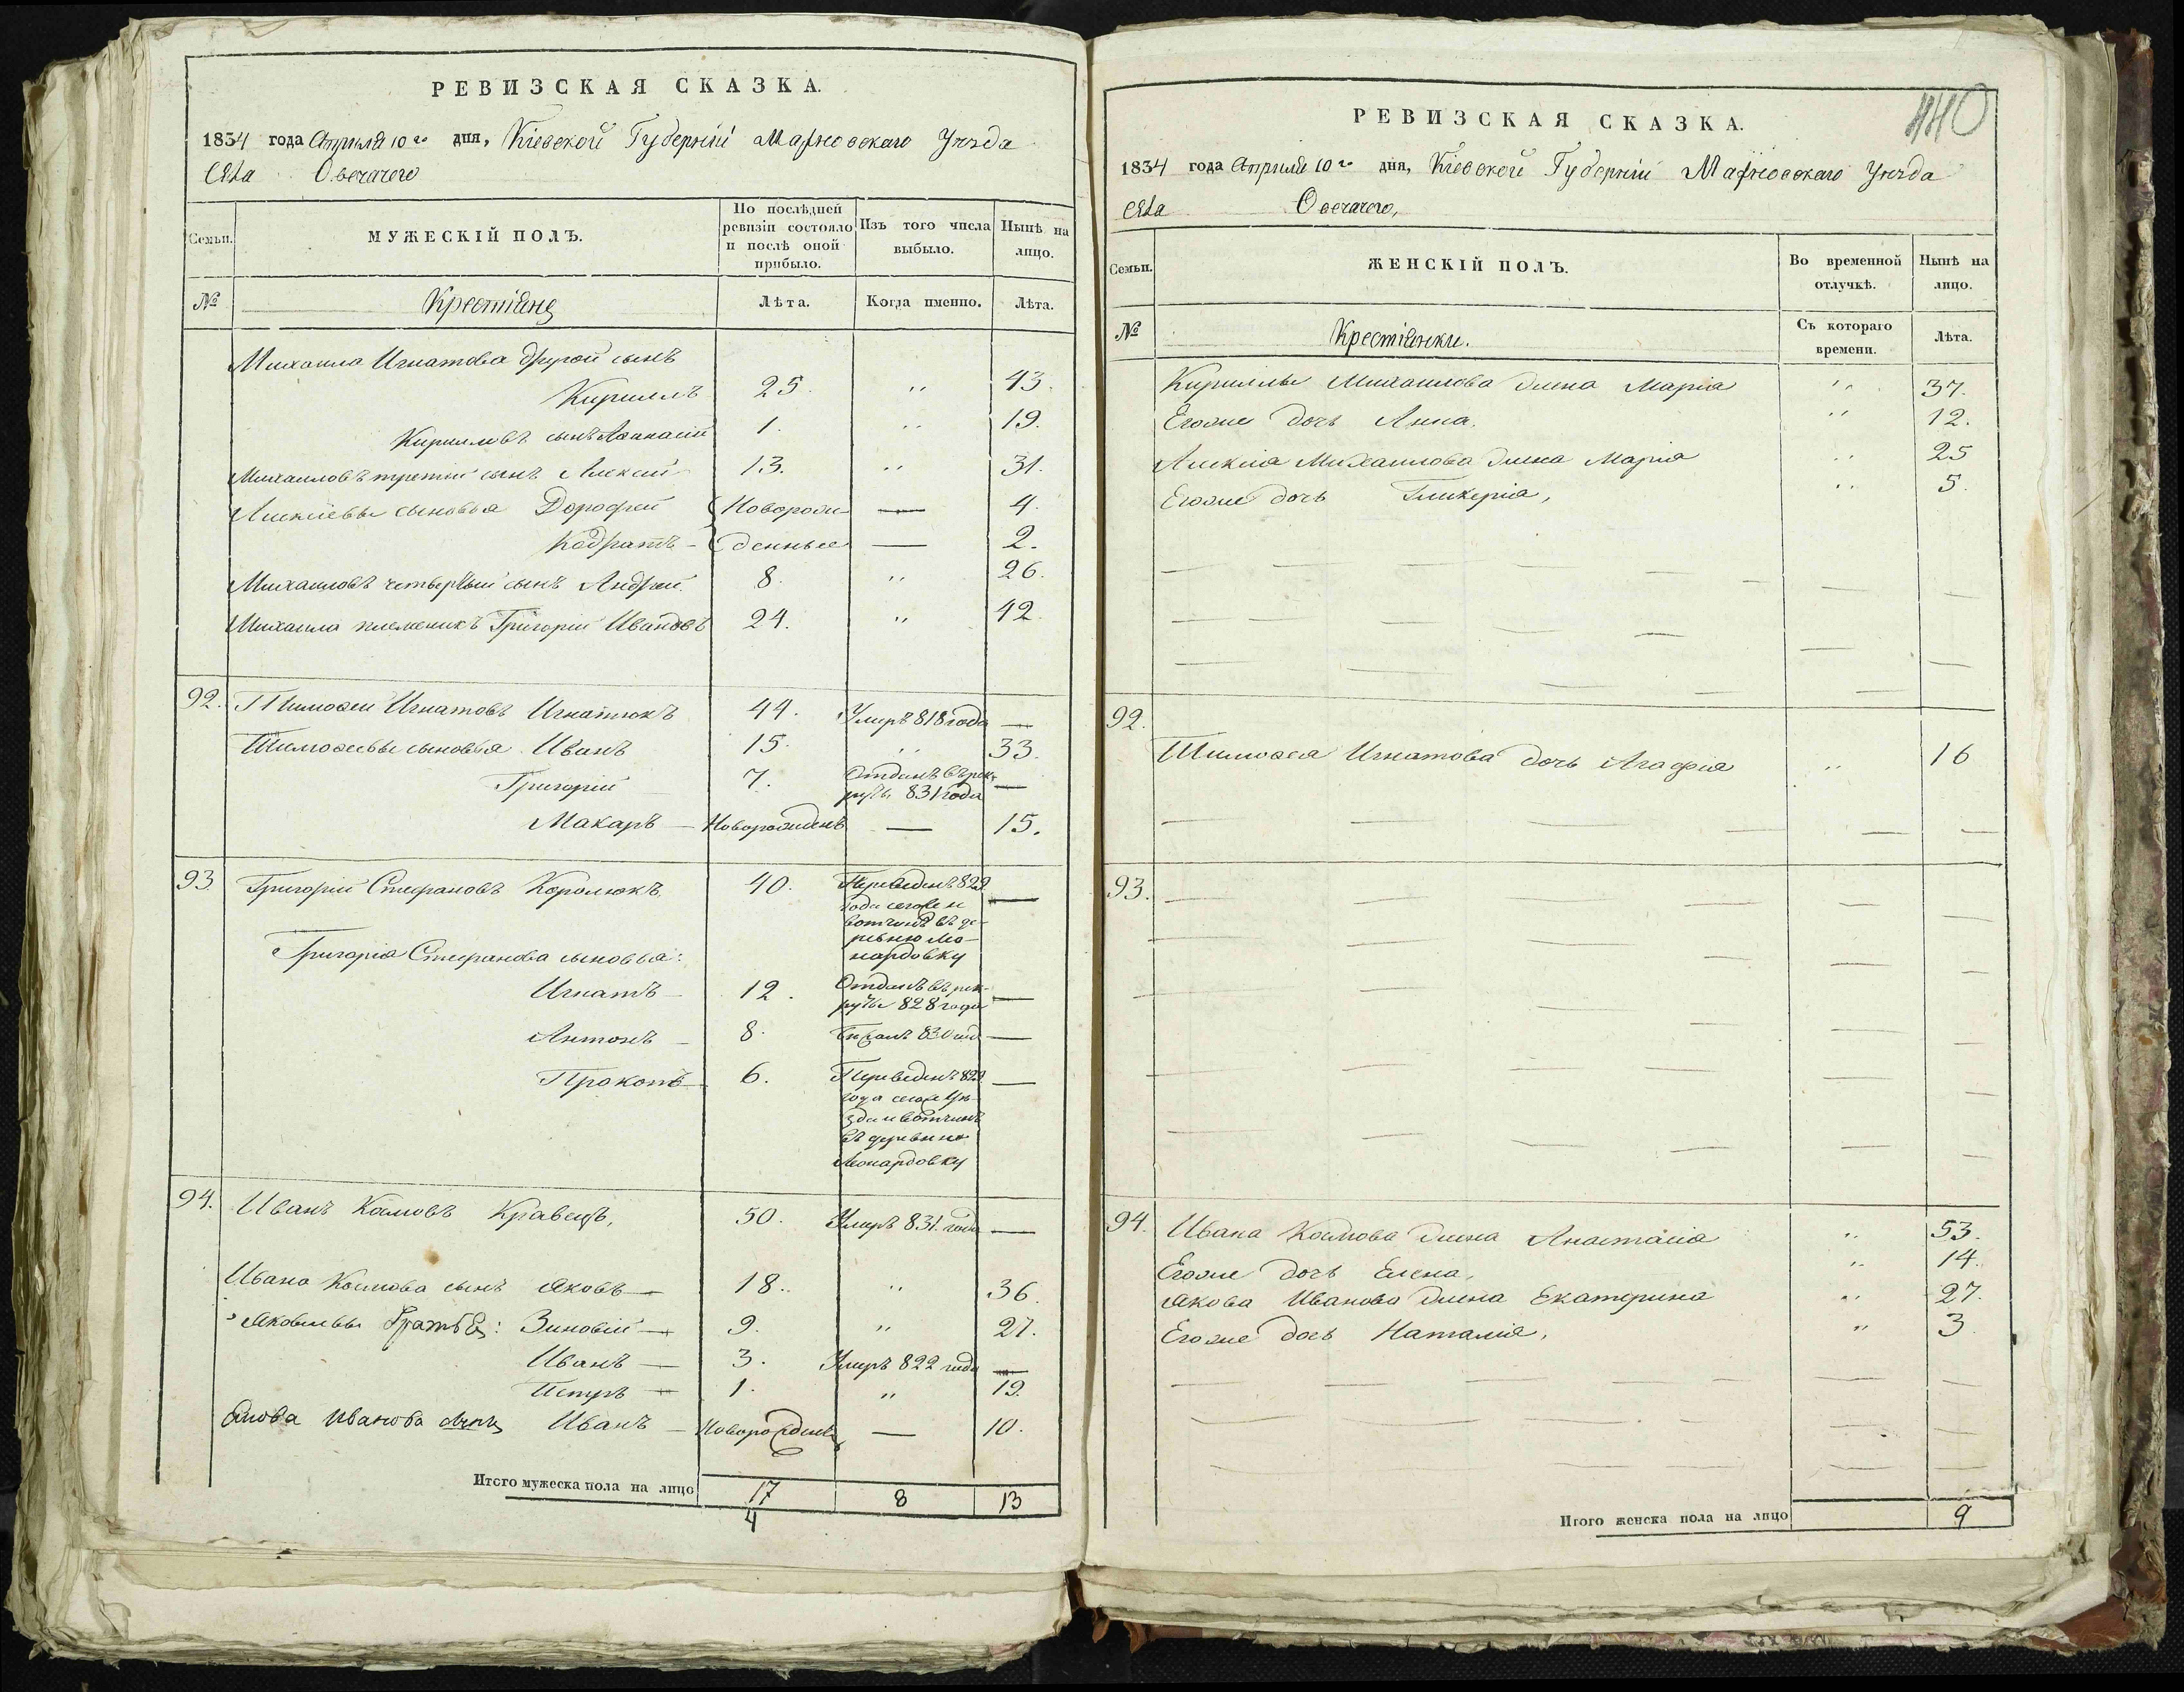 РЕВИЗСКАЯ СКАЗКА.
1834 года Апреля 10го дня, Кіевской Губерніи Махновскаго Уѣзда
Села Овечачего
Семьи.
МУЖЕСКІЙ ПОЛЪ.
По послѣдней ревизіи состояло и послѣ оной прибыло.
Изъ того числа выбыло.
Нынѣ на лицо.
№
Крестіяне
Лѣта.
Когда именно.
Лѣта.
Михаила Игнатова другой сынъ
Кириллъ 25. „ 43.
Кирилловъ сынъ Афанасій 1. „ 19.
Михаиловъ третій сынъ Алексій 13. „ 31.
Алексіевы сыновья Дорофей Новорож- — 4.
Кодратъ - денные — 2.
Михаиловъ четвертый сынъ Андрей. 8. „ 26.
Михаила племеникъ Григорій Ивановъ 24. „ 42.
92. Тимофей Игнатовъ Игнатюкъ 44. Умеръ 818 года —
Тимофеевы сыновья Иванъ 15. „ 33.
Григорій 7. Отданъ въ рек- —
руты 831 года
Макаръ — Новорожденъ — 15.
93 Григорій Стефановъ Королюкъ. 40. Переведенъ 829 —
года сегоже и
вотчины въ де-
ревню Мо-
нардовку
Григорія Стефанова сыновья:
Игнатъ — 12. Отданъ въ рек- —
руты 828 года
Антонъ — 8. 830 —
Прокопъ 6. Переведенъ 829 —
года сегоже Уѣ-
зда и вотчины
въ деревню
Монардовку
94. Иванъ Космовъ Кравецъ, 50. Умеръ 831. года —
Ивана Космова сынъ Яковъ — 18. „ 36.
Яковлевы братья: Зиновій — 9. „ 27.
Иванъ — 3. Умеръ 822 года —
Петръ — 1. „ 19.
Якова Иванова сынъ Иванъ — Новорожденъ — 10.
Итого мужеска пола на лицо 17 8 13
4
440
РЕВИЗСКАЯ СКАЗКА.
1834 года Апреля 10го дня, Кіевской Губерніи Махновскаго Уѣзда
Села Овечачего,
Семьи.
ЖЕНСКІЙ ПОЛЪ.
Во временной отлучкѣ.
Нынѣ на лицо.
№
Крестіянки.
Съ котораго времени.
Лѣта.
Кириллы Михаилова жена Марія „ 37.
Егоже дочь Анна. „ 12.
Алексія Михаилова жена Марія „ 25
Егоже дочь Гликерія, „ 5.
92.
Тимофея Игнатова дочь Агафія „ 16
93.
94. Ивана Космова жена Анастасія „ 53.
Егоже дочь Елена, „ 14.
Якова Иванова жена Екатерина „ 27.
Егоже дочь Наталія, „ 3
Итого женска пола на лицо 9